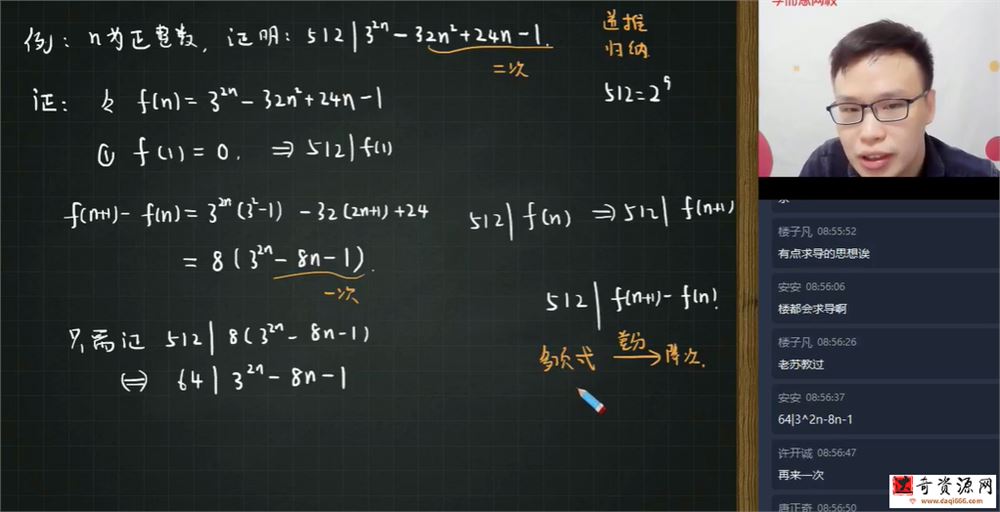 例：n为正整数，证明：512|3²ⁿ-32n²+24n-1.
二次
递推
归纳
512=2⁹
证：令 f(n)=3²ⁿ-32n²+24n-1
① f(1)=0. ⇒ 512|f(1)
f(n+1)-f(n)=3²ⁿ(3²-1)-32(2n+1)+24
=8(3²ⁿ-8n-1).
一次
512|f(n) ⇒ 512|f(n+1)
512|f(n+1)-f(n)?
只需证 512|8(3²ⁿ-8n-1)
⇔ 64|3²ⁿ-8n-1
多项式 差分→ 降次.
学而思网校
楼子凡 08:55:52
有点求导的思想诶
安安 08:56:06
楼都会求导啊
楼子凡 08:56:26
老苏教过
安安 08:56:37
64|3^2n-8n-1
许开诚 08:56:47
再来一次
唐正奇 08:56:50
奇资源网
www.daqi666.com